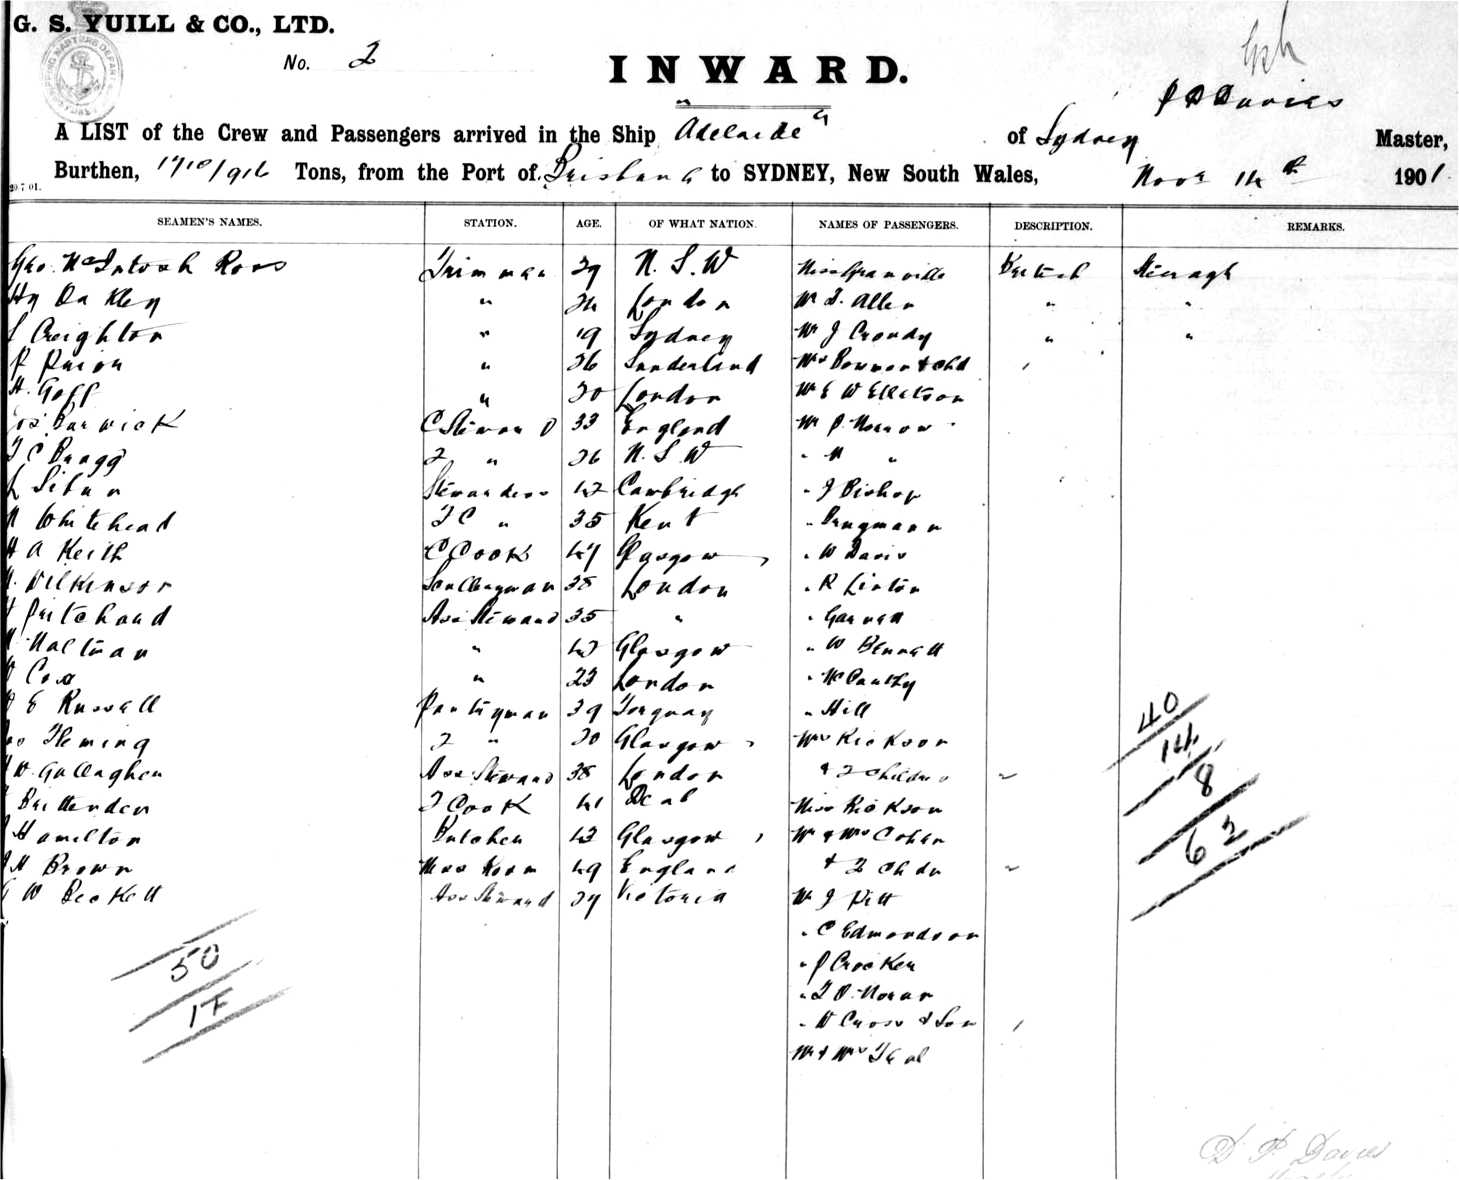 G. S. YUILL & CO., LTD.
No. 2
INWARD.
J D Davies
A LIST of the Crew and Passengers arrived in the Ship "Adelaide" of Sydney Master,
Burthen, 1710/916 Tons, from the Port of Brisbane to SYDNEY, New South Wales, Novr 14th 1901
20.7.01.
SEAMEN'S NAMES. STATION. AGE. OF WHAT NATION. NAMES OF PASSENGERS. DESCRIPTION. REMARKS.
Geo. McIntosh Ross Trimmer 29 N. S. W Miss Granville British Steerage
Hy Oakley " 24 London Mr S. Allen " "
Creighton " 19 Sydney Mr J Croudy " "
P " 26 Sunderland Mrs Bowman & chd
H. Goff " 20 London Mr E W Elletson
Barwick C Steward 33 England Mr P Morrow
T C Bragg 2 " 26 N. S. W " M "
Stewardess 42 Cambridge " J Bishop
Whitehead 2 C " 35 Kent " Brugmann
A Keith C Cook 47 Glasgow " W Davis
Wilkinson Sculleryman 38 London " R Linton
Pritchard Ass Steward 35 " " Garnett
Maltman " 42 Glasgow " W Bennett
Cox " 23 London " McCarthy
E Russell Pantryman 39 Torquay " Hill
Fleming 2 " 20 Glasgow Mrs Rickson
W. Gallagher Ass Steward 38 London & 2 Children "
Brittenden 2 Cook 41 Deal Miss Rickson
Hamilton Butcher 42 Glasgow Mr & Mrs Cohen
H Brown Mess Room 49 England & 2 chdn "
W Beckett Ass Steward 27 Victoria Mr J Pitt
" C Edmondson
" P Crocker
" T O. Moran
" W Cross & Son
Mr & Mrs Teal
40
14
8
62
50
17
D P Davies